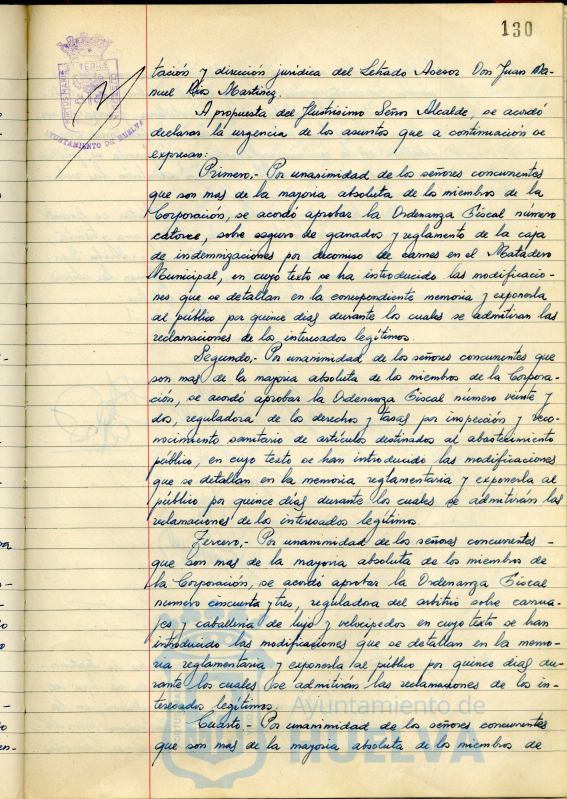 130
PORTUS MARIS ET TERRE CUSTODIA
AYUNTAMIENTO DE HUELVA
tación y dirección jurídica del Letrado Asesor Don Juan Ma-
nuel Ríos Martínez.
A propuesta del Ilustrísimo Señor Alcalde, se acordó
declarar la urgencia de los asuntos que a continuación se
expresan:
Primero,- Por unanimidad de los señores concurrentes
que son mas de la mayoria absoluta de los miembros de la
Corporación, se acordó aprobar la Ordenanza Fiscal número
catorce, sobre seguro de ganados y reglamento de la caja
de indemnizaciones por decomiso de carnes en el Matadero
Municipal, en cuyo texto se ha introducido las modificacio-
nes que se detallan en la correspondiente memoria y exponerla
al público por quince días durante los cuales se admitiran las
reclamaciones de los interesados legítimos.
Segundo,- Por unanimidad de los señores concurrentes que
son mas de la mayoria absoluta de los miembros de la Corpora-
ción, se acordó aprobar la Ordenanza Fiscal número veinte y
dos, reguladora de los derechos y tasas por inspección y reco-
nocimiento sanitario de articulos destinados al abastecimiento
público, en cuyo texto se han introducido las modificaciones
que se detallan en la memoria reglamentaria y exponerla al
público por quince días durante los cuales se admitirán las
reclamaciones de los interesados legítimos
Tercero,- Por unanimidad de los señores concurrentes -
que son mas de la mayoria absoluta de los miembros de
la Corporación, se acordó aprobar la Ordenanza Fiscal
numero cincuenta y tres, reguladora del arbitrio sobre carrua-
jes y caballeria de lujo y velocípedos en cuyo texto se han
introducido las modificaciones que se detallan en la memo-
ria reglamentaria y exponerla al público por quince dias du-
rante los cuales se admitirán las reclamaciones de los in-
teresados legítimos.
Cuarto.- Por unanimidad de los señores concurrentes
que son mas de la mayoria absoluta de los miembros de
Ayuntamiento de
HUELVA